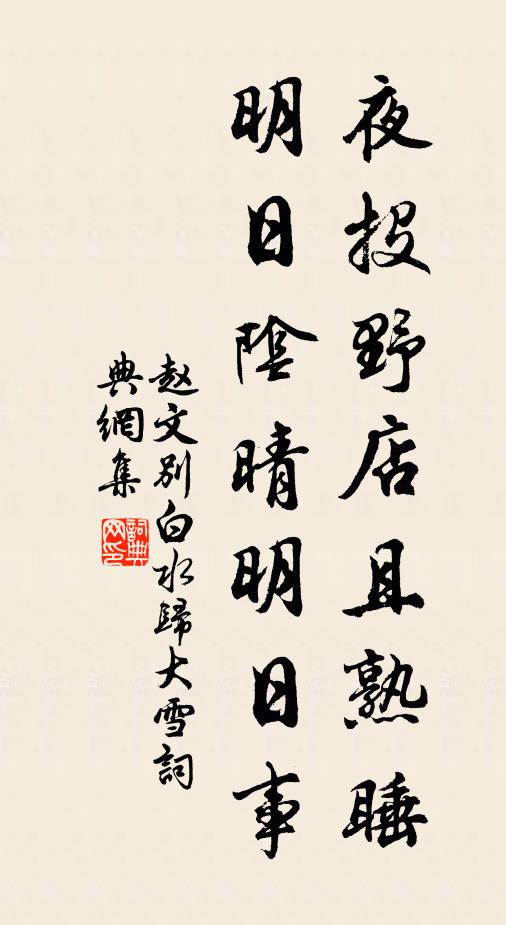 夜投野店且熟睡
明日陰晴明日事
赵文别白水歸大雪詞
典網集
詞典
网印